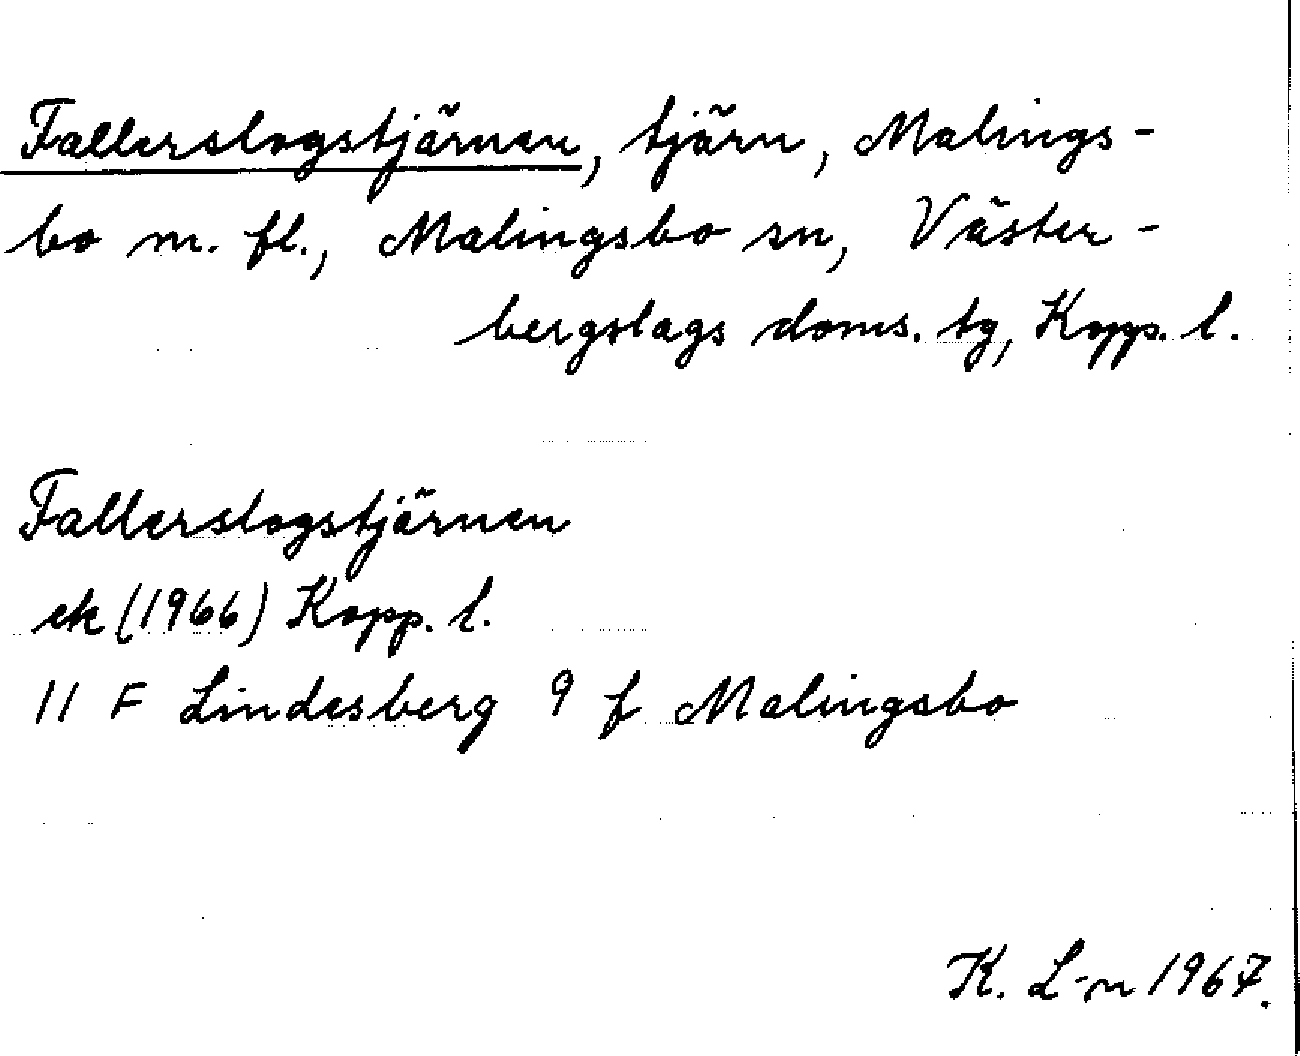 Fallerslogstjärnen, tjärn, Malings-
bo m. fl., Malingsbo sn, Väster-
bergslags doms. tg, Kopps. l.
Fallerslogstjärnen
ek (1966) Kopp. l.
11 F Lindesberg 9 f Malingsbo
K. L-n 1967.